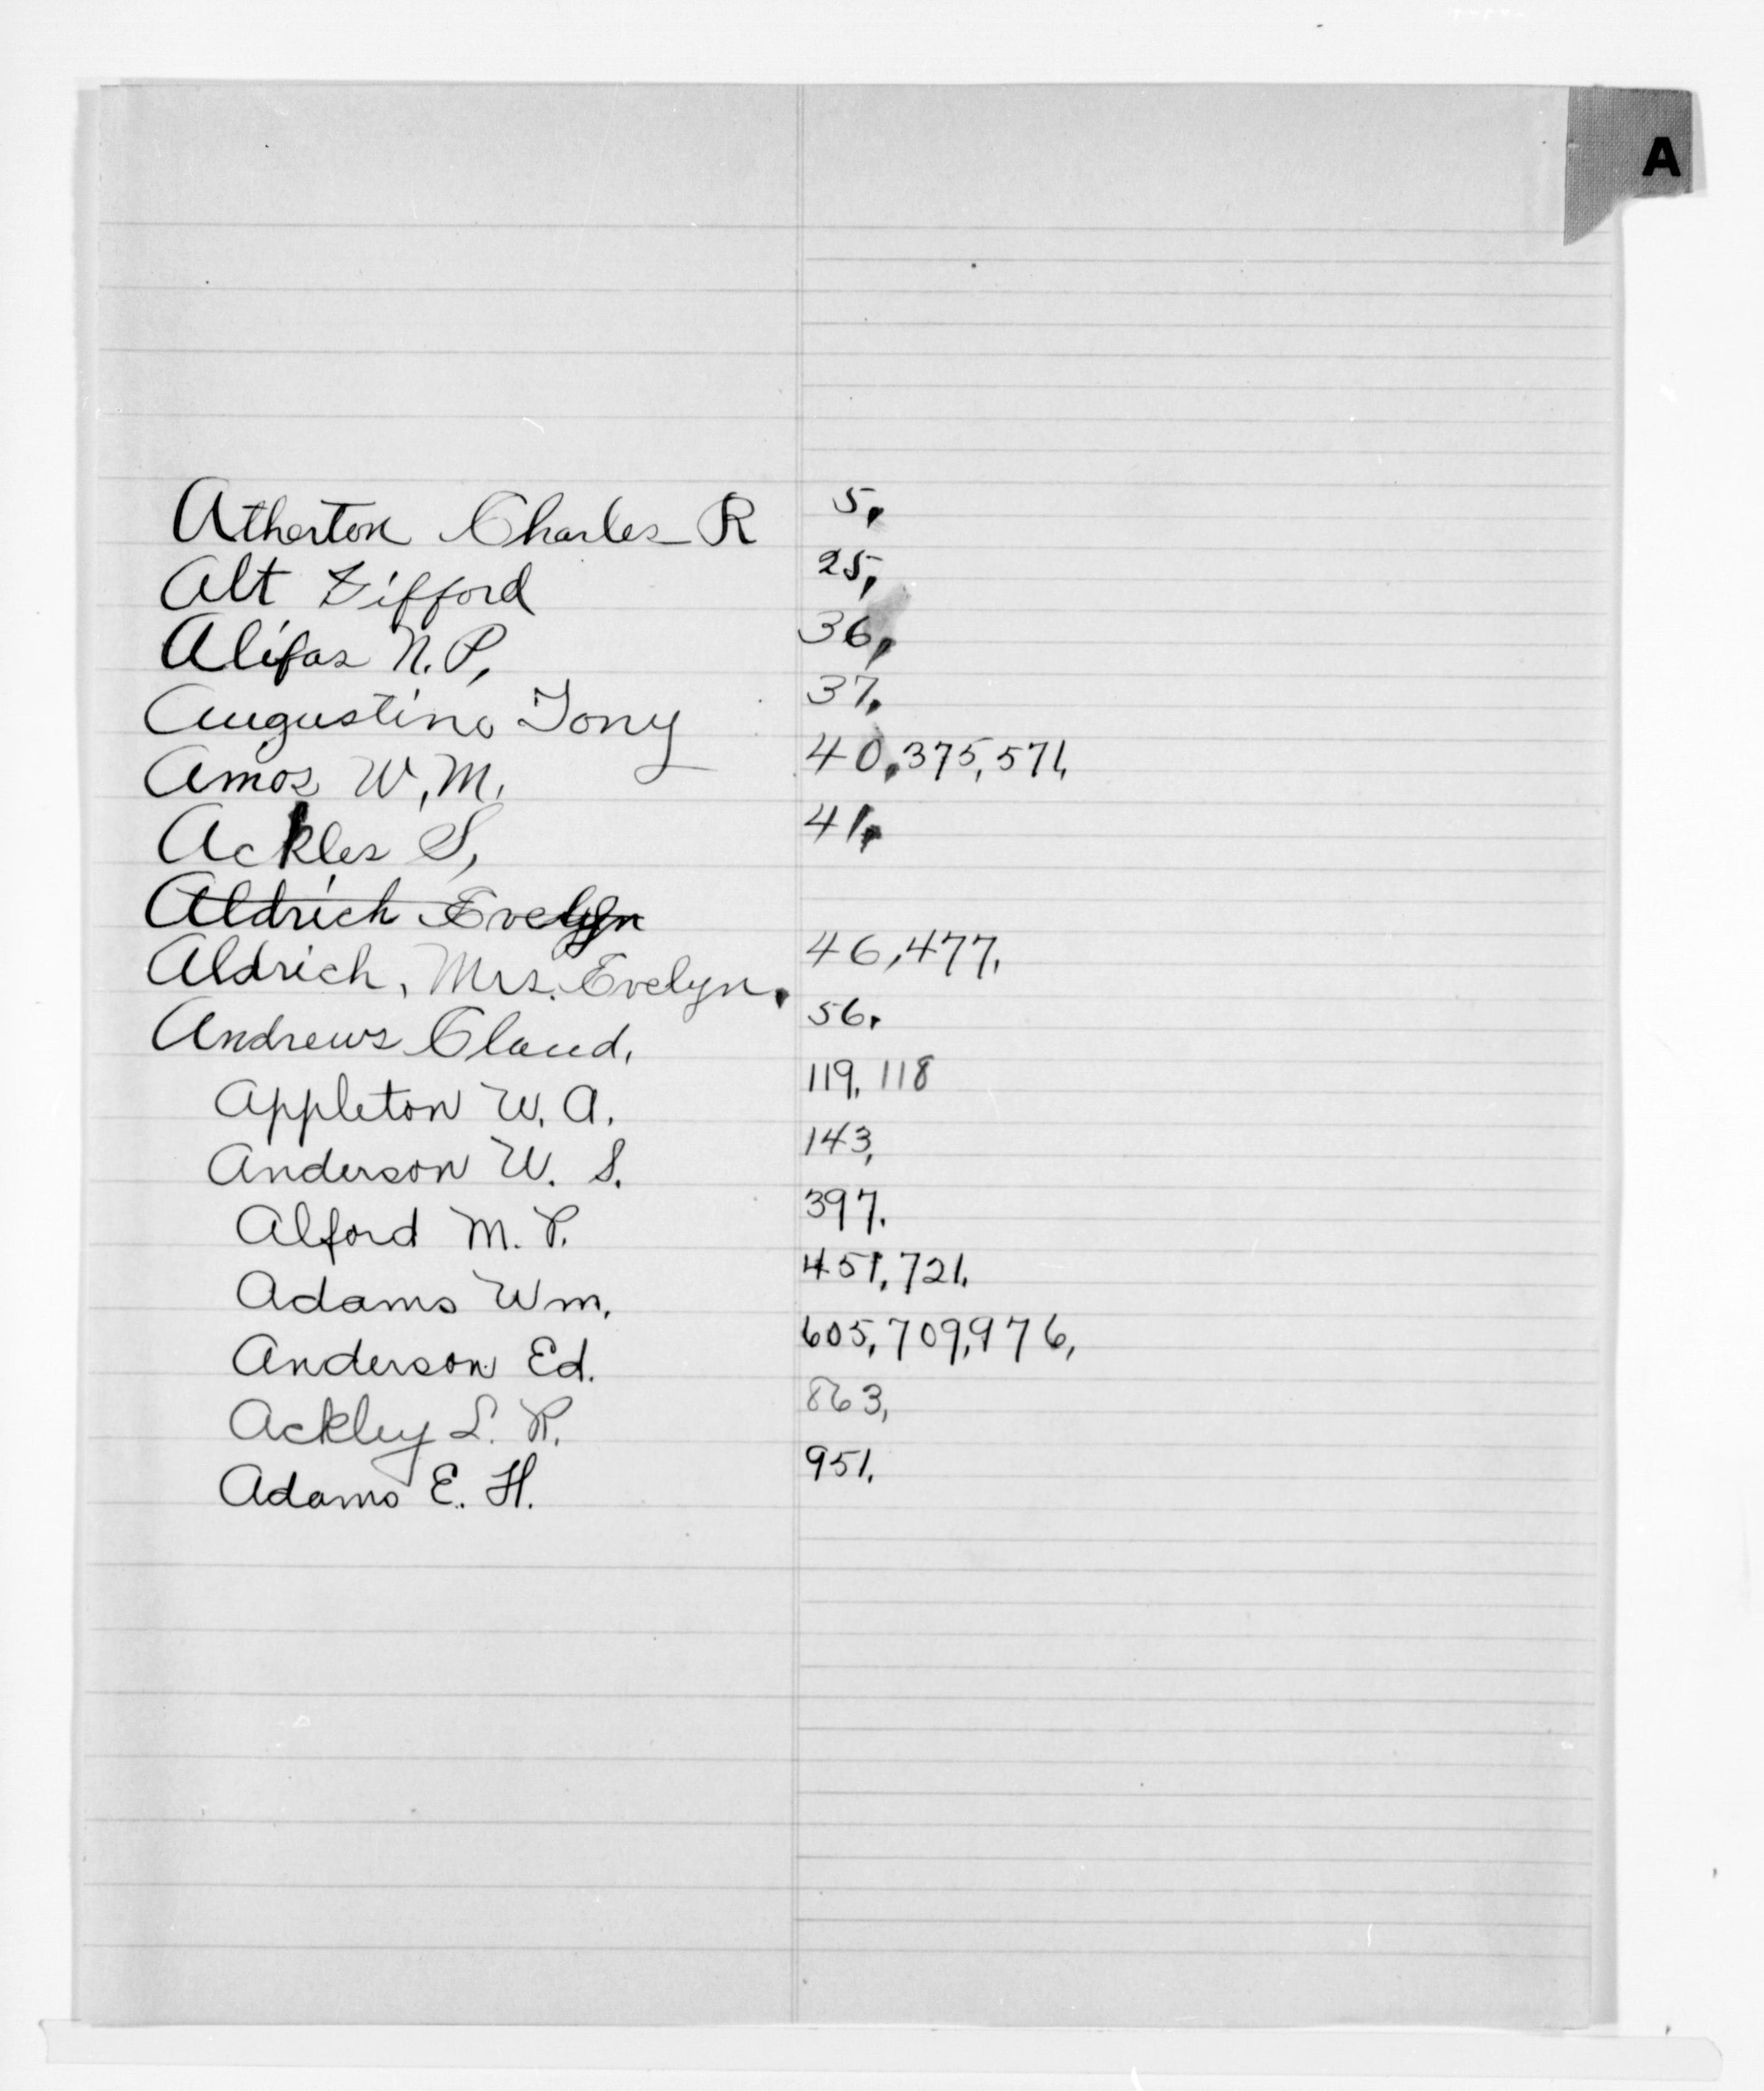 A
Atherton Charles R 5,
Alt Gifford 25,
Alifas N.P, 36,
Augustino Tony 37.
Amos W.M. 40,375,571,
Ackles S, 41,
Aldrich Evelyn
Aldrich, Mrs. Evelyn, 46,477,
Andrews Claud, 56.
Appleton W. A. 119, 118
Anderson W. S. 143,
Alford M. P. 397.
Adams Wm. 451,721,
Anderson Ed. 605,709,976,
Ackley L. R. 863,
Adams E. H. 951.